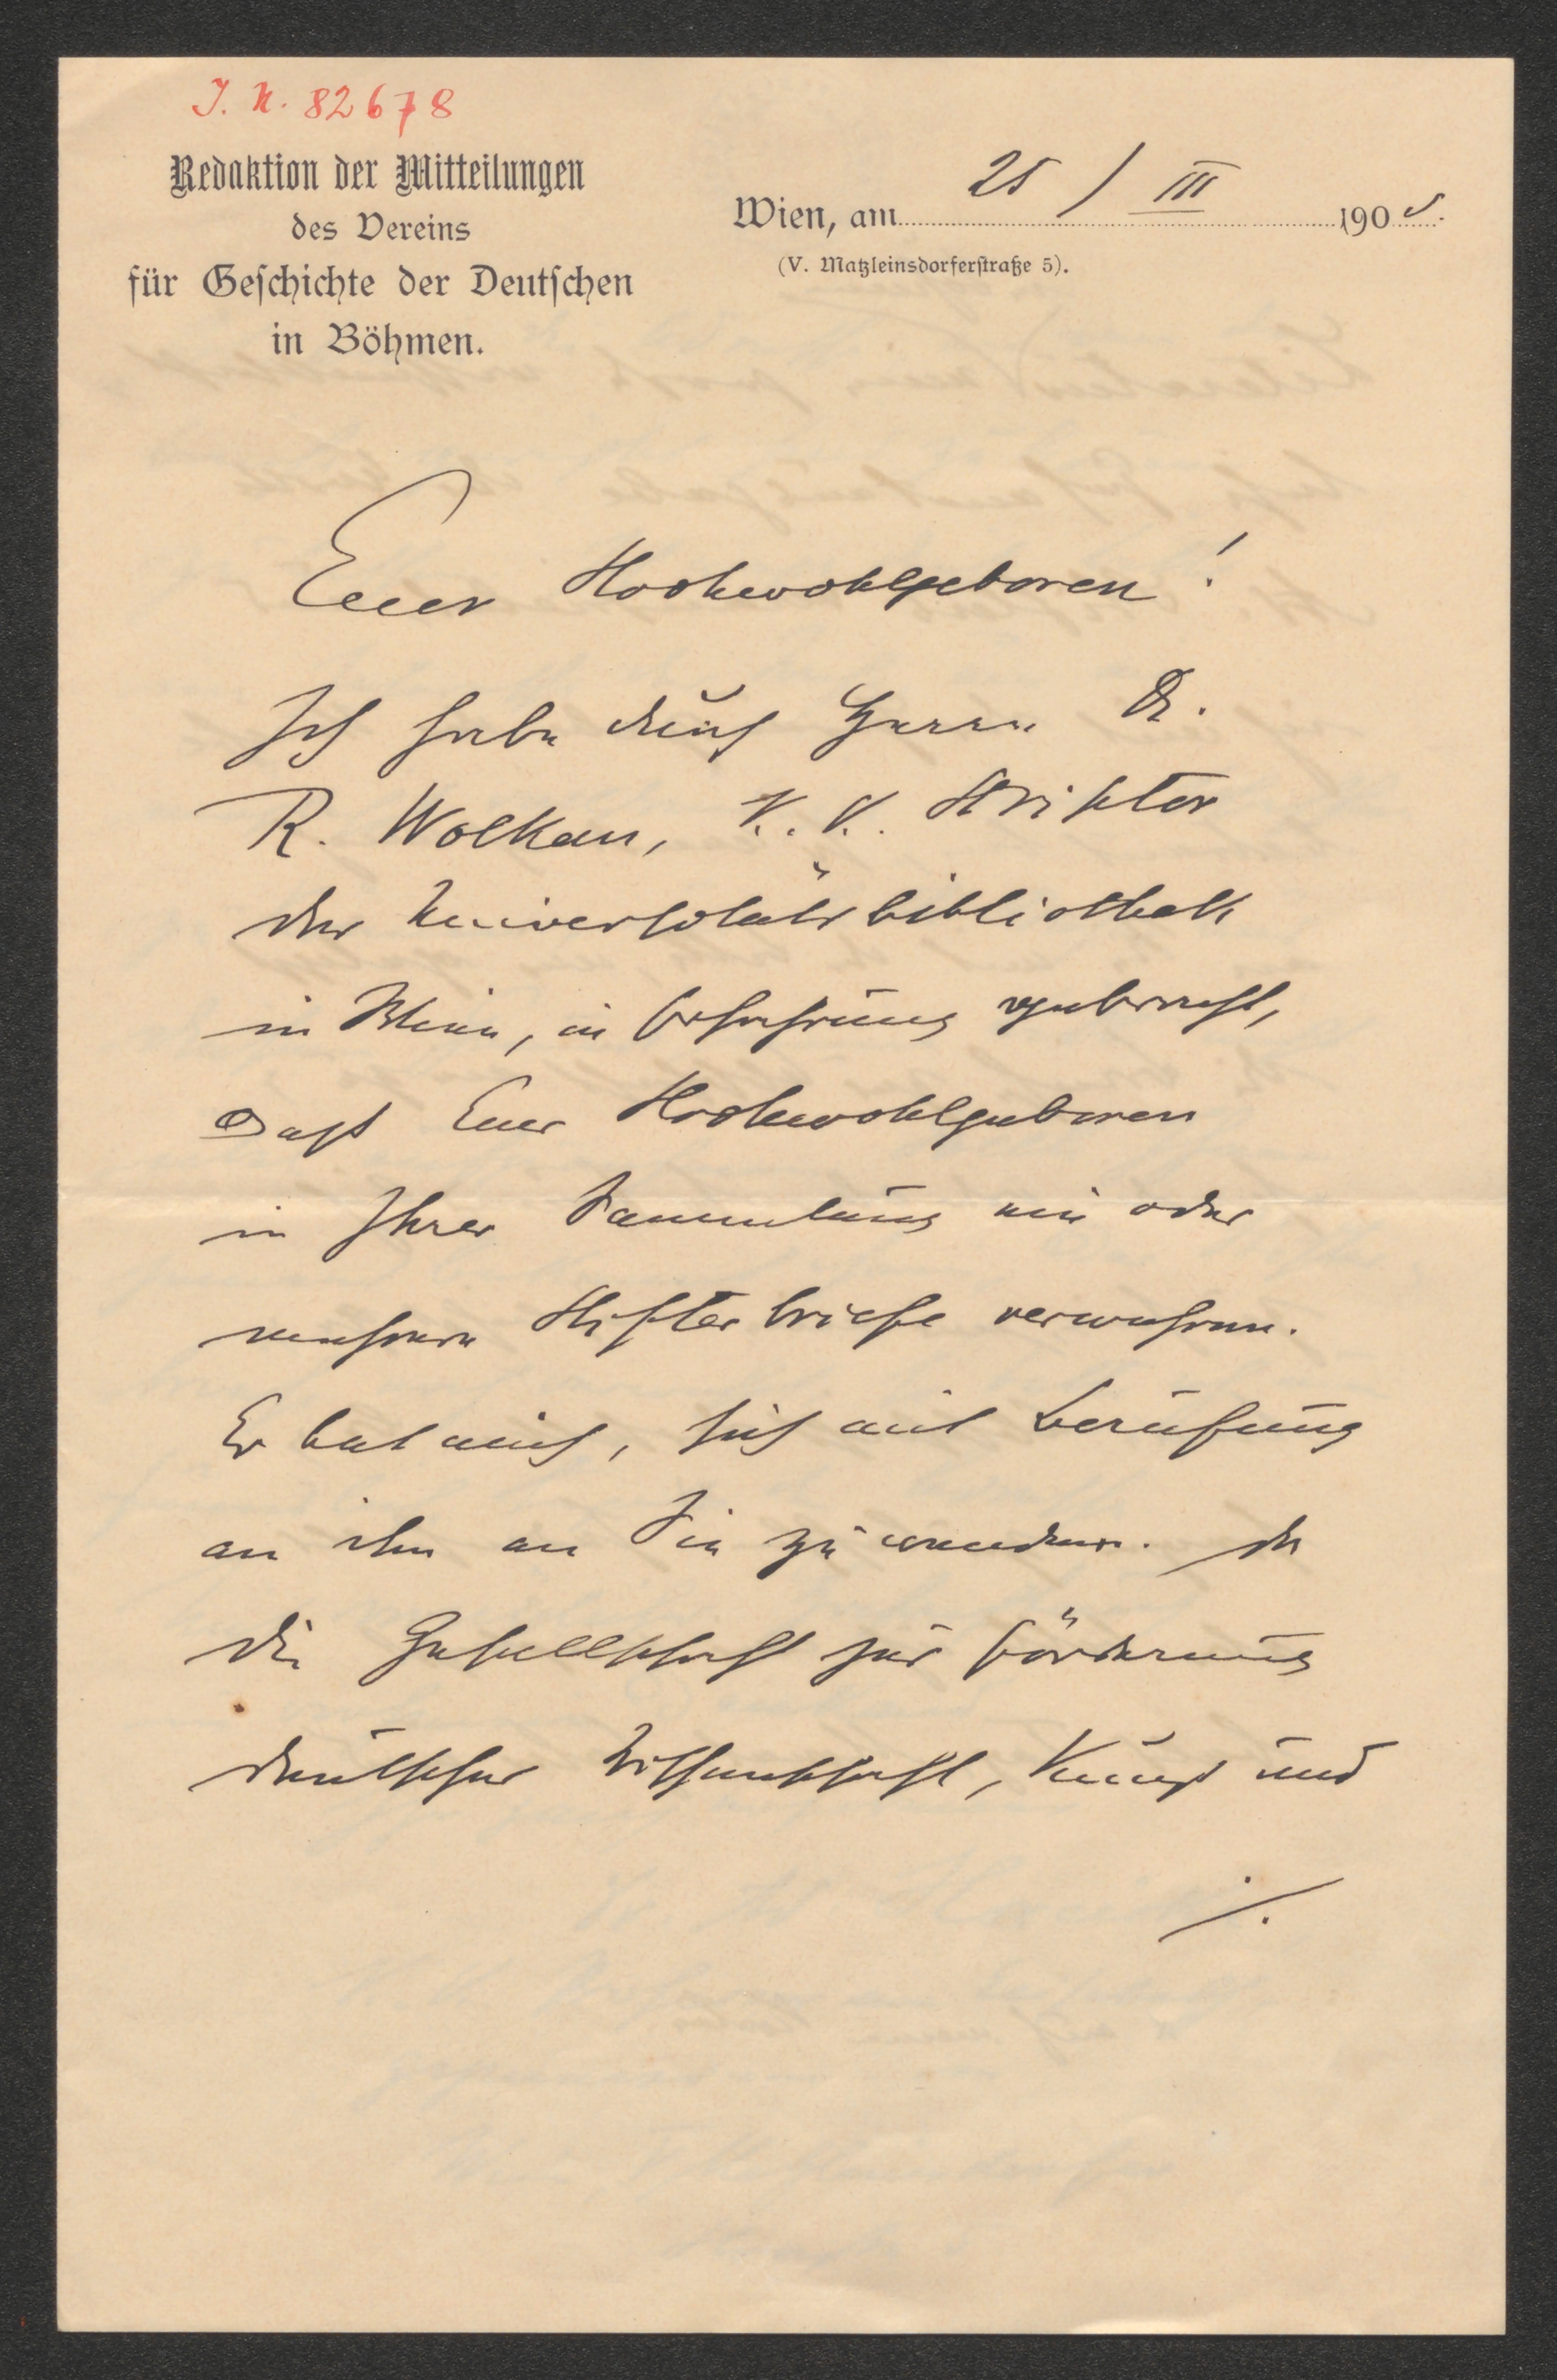 J. N. 82678
Redaktion der Mitteilungen
des Vereins
für Geschichte der Deutschen
in Böhmen.
Wien, am 25 / III 1905.
(V. Matzleinsdorferstraße 5).
Euer Hochwohlgeboren!
Ich habe durch Herrn Dr.
R. Wolkan, K. K. Skriptor
der Universitätsbibliothek
in Wien, in Erfahrung gebracht,
dass Euer Hochwohlgeboren
in Ihrer Sammlung ein oder
mehrere Stifterbriefe verwahren.
Er bat mich, sich mit Berufung
an ihn an Sie zu wenden. Da
die Gesellschaft zur Förderung
deutscher Wissenschaft, Kunst und
./.